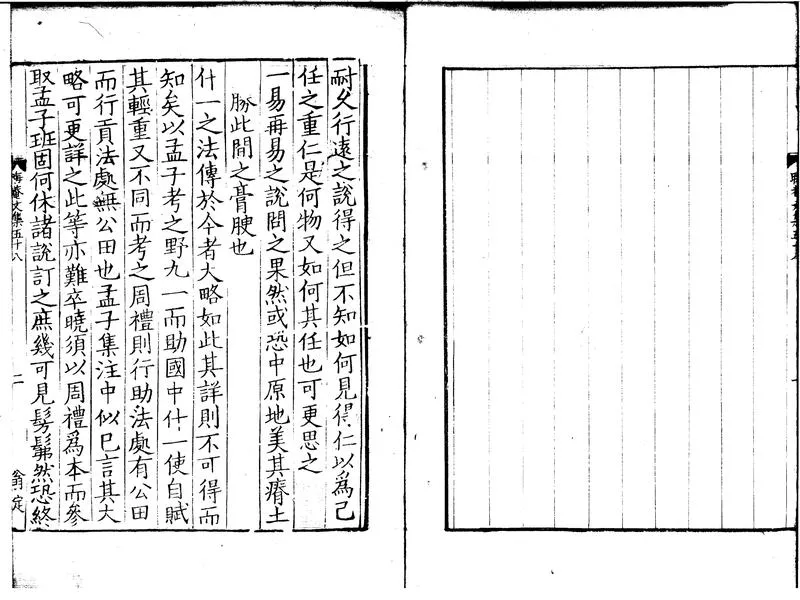 耐久行遠之說得之但不知如何見得仁以爲己
任之重仁是何物又如何其任也可更思之
一易再易之說問之果然或恐中原地美其瘠土
勝此間之膏腴也
什一之法傳於今者大略如此其詳則不可得而
知矣以孟子考之野九一而助國中什一使自賦
其輕重又不同而考之周禮則行助法處有公田
而行貢法處無公田也孟子集注中似已言其大
略可更詳之此等亦難卒曉須以周禮爲本而參
取孟子班固何休諸說訂之庶幾可見髣髴然恐終
晦菴文集五十八
二
翁定